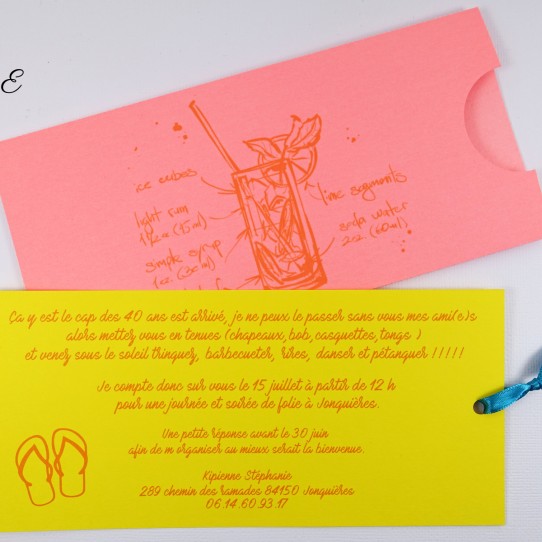 E
ice cubes
lime segments
light rum
1½ oz (45ml)
soda water
2oz (60ml)
simple syrup
1 oz (30ml)
Ça y est le cap des 40 ans est arrivé, je ne peux le passer sans vous mes ami(e)s
alors mettez vous en tenues (chapeaux,bob,casquettes,tongs )
et venez sous le soleil trinquer, barbecueter, rires, danser et pétanquer !!!!!
Je compte donc sur vous le 15 juillet à partir de 12 h
pour une journée et soirée de folie à Jonquières.
Une petite réponse avant le 30 juin
afin de m organiser au mieux serait la bienvenue.
Kipienne Stéphanie
289 chemin des ramades 84150 Jonquières
06.14.60.93.17